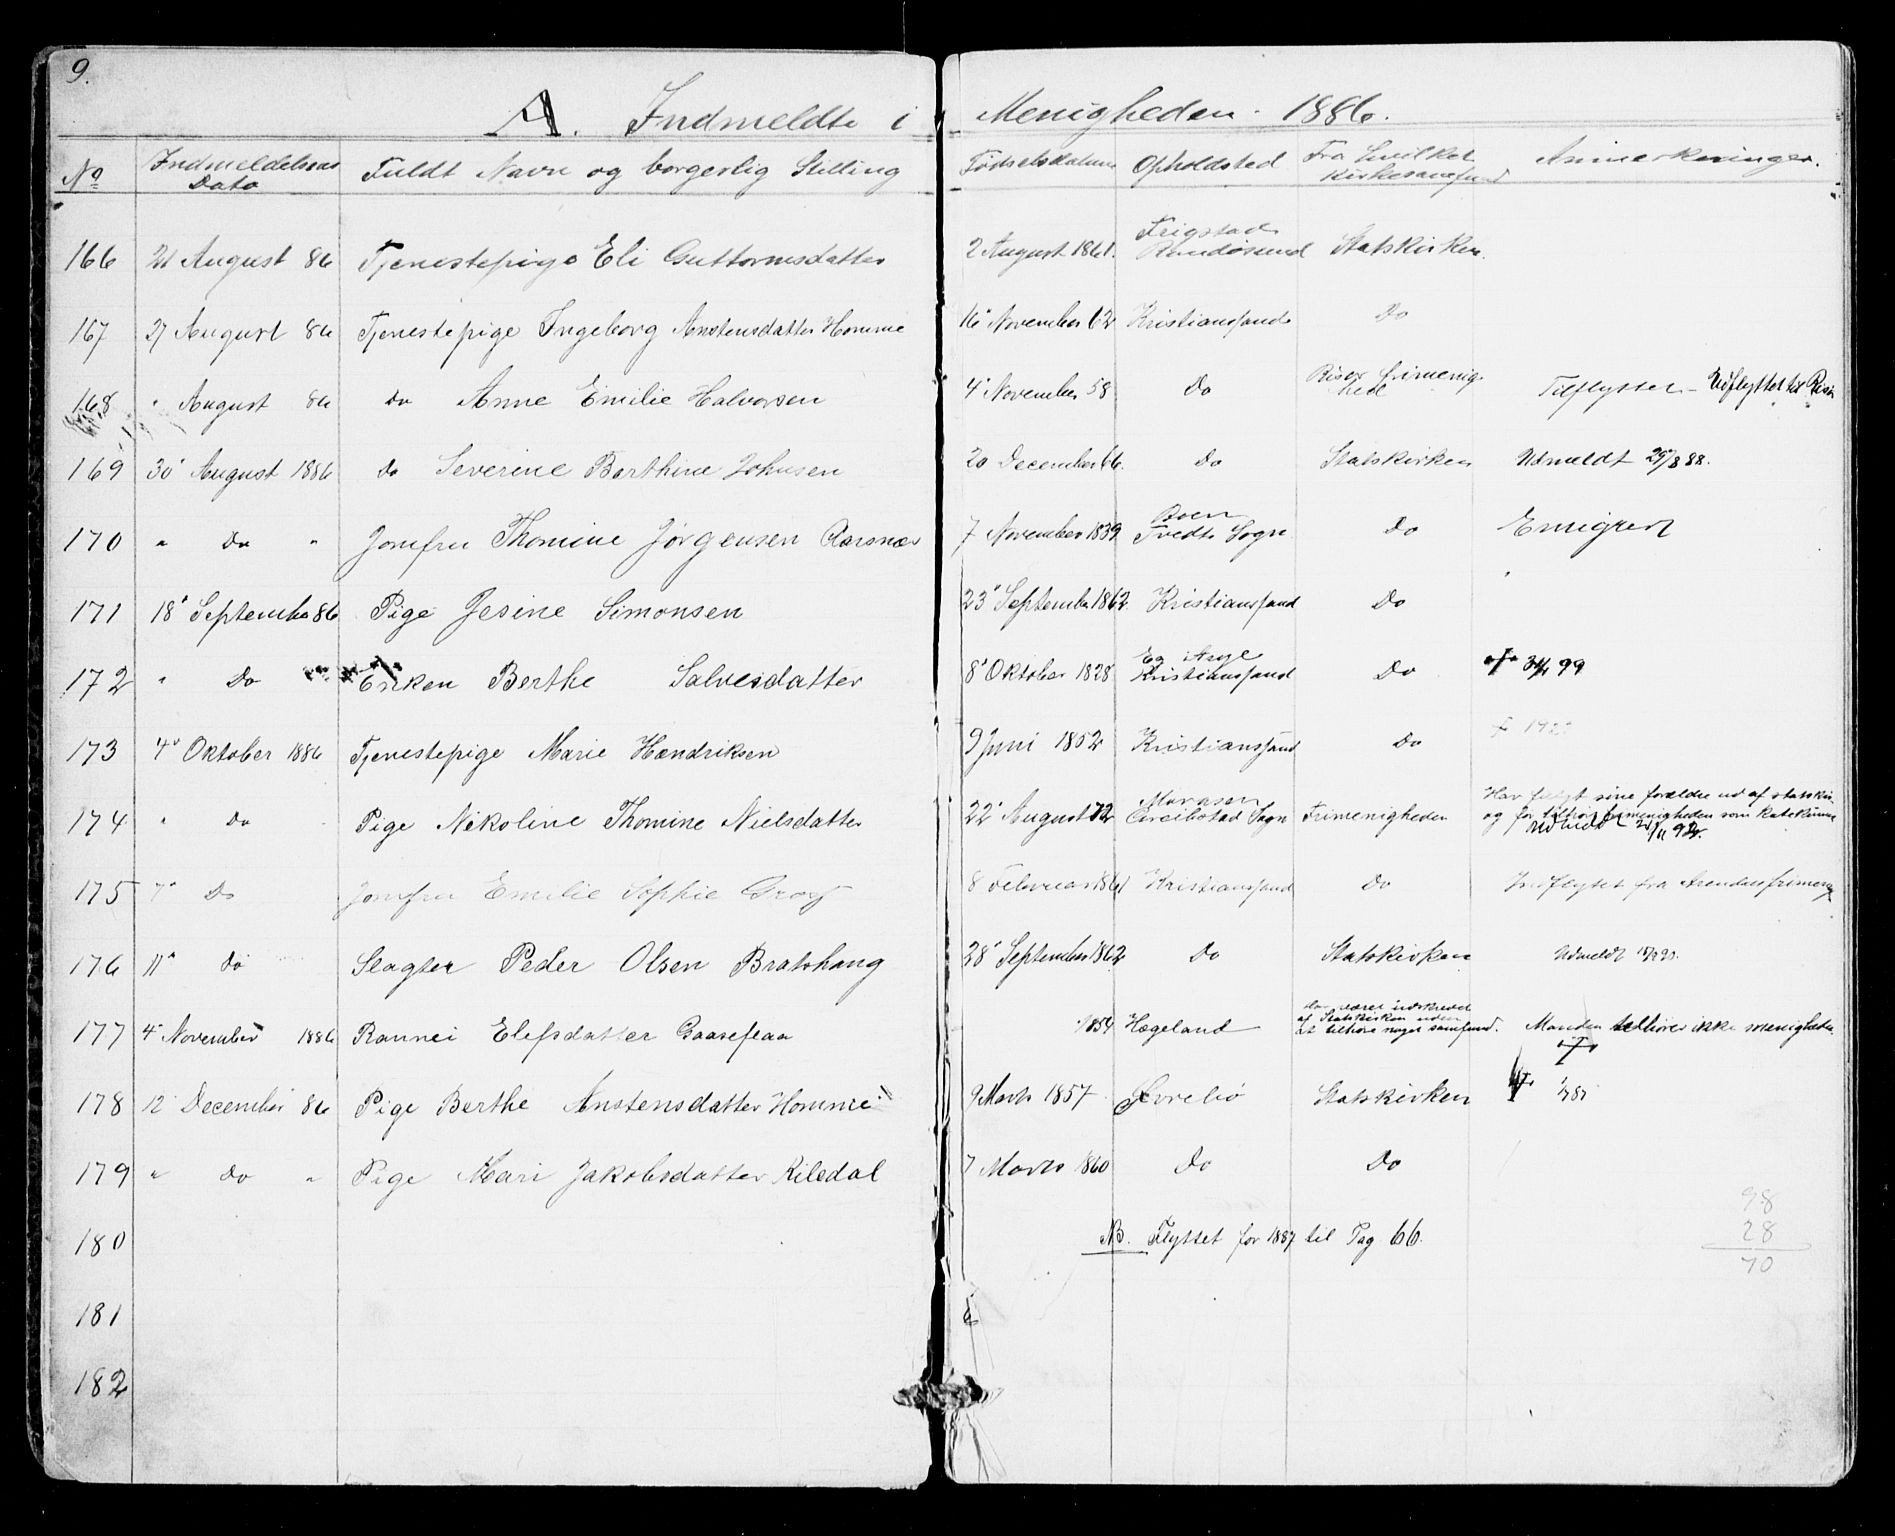 9.
A. Indmeldte i Menigheden. 1886.
No Indmeldelses Dato Fuldt Navn og borgerlig Stilling Fødselsdatum Opholdsted Fra hvilket Kirkesamfund Anmerkninger.
166 21 August 86 Tjenestepige Eli Guttormsdatter 2 August 1861. Frigstad Randøsund Statskirken.
167 27 August 86 Tjenestepige Ingeborg Anstensdatter Homme 16 November 62 Kristianssand Do
168 " August 86 Do Anne Emilie Halvorsen 4 November 58 Do Risør frimenighed Tilflyttet - Udflyttet til Risør
169 30 August 1886 Do Severine Berthine Johnsen 20 December 66. Do Statskirken Udmeldt 29/8 88.
170 " Do " Jomfru Thomine Jørgensen Aarsnæs 7 November 1839 Boen Tvedt Sogn Do Emigrert
171 18 September 86 Pige Jesine Simonsen 23 September 1862. Kristianssand Do "
172 " Do Enken Berthe Salvesdatter 8 Oktober 1828 Kristianssand Do 99
173 4 Oktober 1886 Tjenestepige Marie Hendriksen 9 Juni 1852 Kristianssand Do
174 " Do Pige Nikoline Thomine Nielsdatter 22 August 72 Greibstad Sogn Frimenigheden Har fulgt sine forældre ud af statskir.
og før tilhørt frimenigheden som katekumen
Udmeldt 2/11 92.
175 7 Do Jomfru Emilie Sophie Grøf 8 Februar 1861 Kristianssand Do Indflyttet fra Arendals frimenig
176 11 Do Slagter Peder Olsen Bratshaug 28 September 1862 Do Statskirken Udmeldt
177 4 November 1886 Rannei Elefsdatter Gaaseflaa 1854 Hægeland Har været udskrevet af Statskirken uden at tilhøre noget samfund. Manden tilhører ikke menigheden
178 12 December 86 Pige Berthe Anstensdatter Homme 9 Marts 1857 Øvrebø Statskirken
179 " Do " Pige Mari Jakobsdatter Kiledal 7 Marts 1860 Do Do
98
180 NB. Flyttet for 1887 til Pag 66. 28
70
181
182